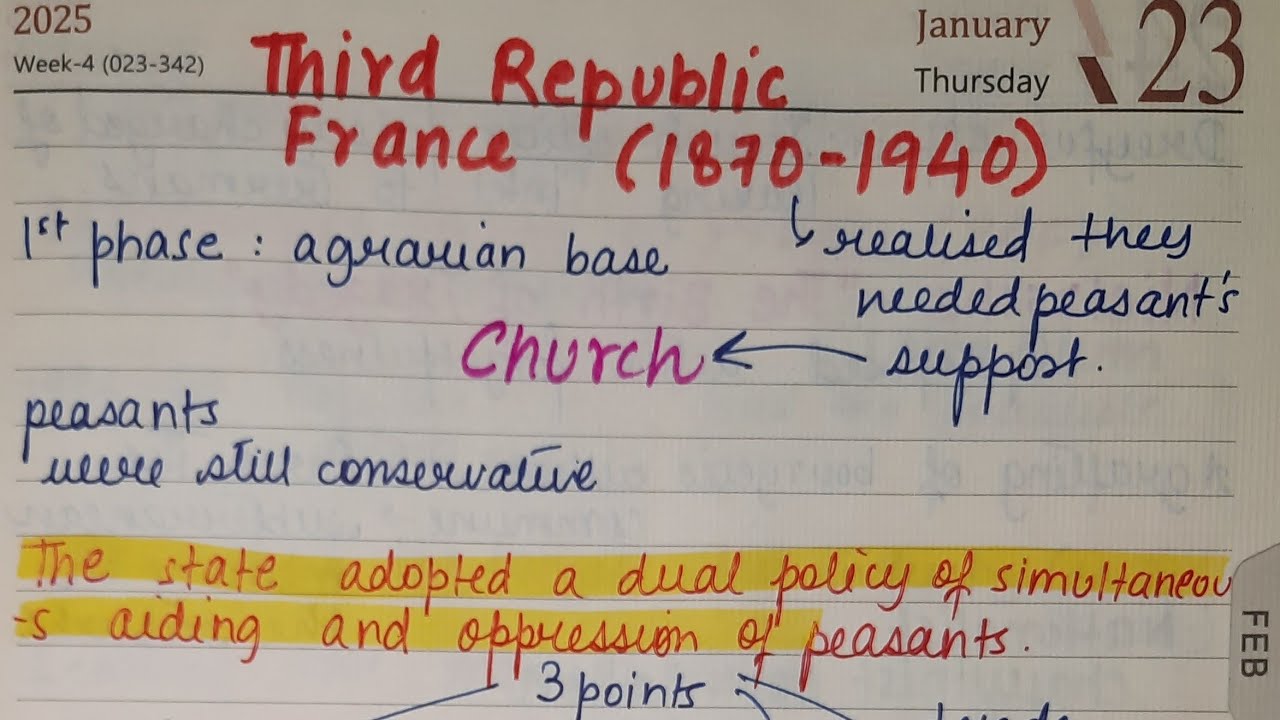 2025
Week-4 (023-342)
January
Thursday
23
Third Republic
France (1870-1940)
1st phase : agrarian base
realised they
needed peasant's
support.
Church
peasants
were still conservative
The state adopted a dual policy of simultaneou
-s aiding and oppression of peasants.
3 points
FEB